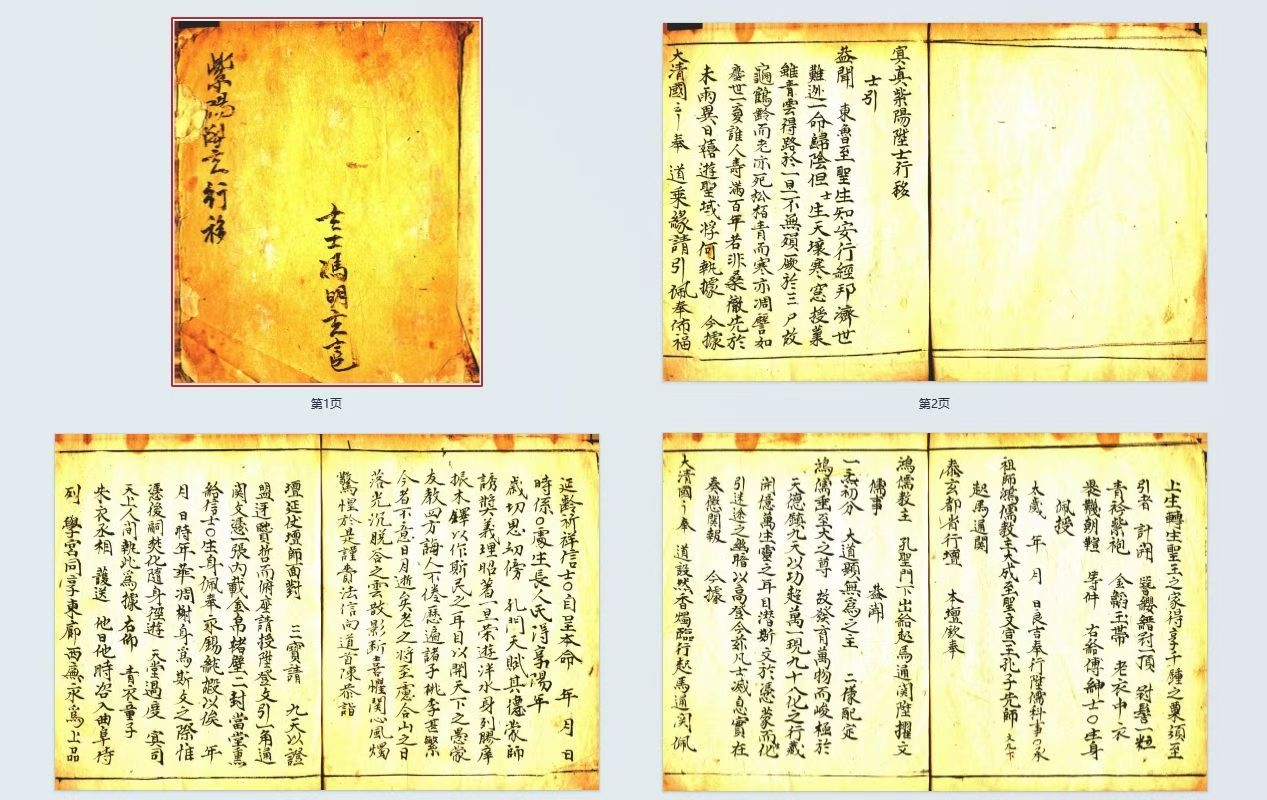 紫陽陞士行移
士馮明玄宦
第1页
宾真紫陽陞士行移
士引
益聞 東魯至聖生知安行經邦濟世
難逊一命歸陰但士生天壤寒窓授業
雖青雲得路於一旦不無殞厥於三尸故
龜鶴齡而老亦死松栢青而寒亦凋譬如
塵世一夏誰人壽滿百年若非桑徹先於
未雨異日禧遊聖域将何執據 今據
大清國云卩奉 道乗緣請引佩奉佈福
第2页
延齡祈祥信士〇自呈本命 年 月 日
時係〇處生長人氏得享陽年
歲切思幼傍 孔門天賦其德蒙師
誘奬義理昭著一旦荣遊泮水身列膠庠
振木鐸以作斯民之耳目以開天下之愚蒙
友教四方誨人不倦歷遍諸子桃李甚繁
今名不意日月逝矣老之将至慮合山之日
落光沉脫谷之雲故影新喜懼関心風燭
驚惶於是謹賫法信向道首陳恭詣
壇延使壇師面對 三寶請 九天以證
盟迓賢哲而俯座請授陞登文引一角通
関文憑一張内載金帛楮壁二封當堂熏
給信士〇生身佩奉永锡純嘏以俟 年
月 日時年華凋榭身爲斯文之際惟
憑後嗣焚化隨身徑遊 天堂過度 宾司
天上人間執此為據右仰 青衣童子
朱衣丞相 護送 他日他時咨入曲阜侍
列 學宮同享東廊西廡永爲上品
上生轉生聖王之家得享千鍾之粟須至
引者 計開 簮纓縉冠一頂 冠髻一粒
青衿紫袍 金韜玉帶 老衣中衣
皂靴朝鞋 等件 右給傳紳士〇生身
佩授
太歲 年 月 日良吉奉行陞儒科事〇承
祖師鴻儒教主大成至聖文宣王孔子先師
泰玄都省行壇 本壇欽奉
起馬通関
鴻儒教主 孔聖門下出給起馬通関陞擢文
儒事 益聞
一炁初分 大道顯無為之主 二儀配定
鴻儒垂至大之尊 故發育萬物而峻極於
天德鎮九天以功超萬一現九十八化之行藏
開億萬生靈之耳目潜斯文於愚蒙而化
引迷途之幽暗以高登今茲凡士滅息實在
奏懋関報 今據
大清國云卩奉 道設然香燭臨行起馬通関佩